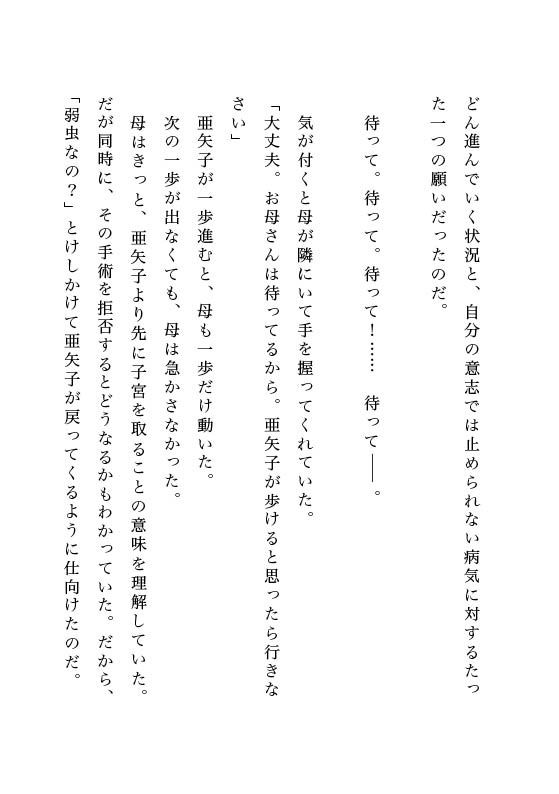 どん進んでいく状況と、自分の意志では止められない病気に対するたっ
た一つの願いだったのだ。
待って。待って。待って！……　待って――。
気が付くと母が隣にいて手を握ってくれていた。
「大丈夫。お母さんは待ってるから。亜矢子が歩けると思ったら行きな
さい」
亜矢子が一歩進むと、母も一歩だけ動いた。
次の一歩が出なくても、母は急かさなかった。
母はきっと、亜矢子より先に子宮を取ることの意味を理解していた。
だが同時に、その手術を拒否するとどうなるかもわかっていた。だから、
「弱虫なの？」とけしかけて亜矢子が戻ってくるように仕向けたのだ。